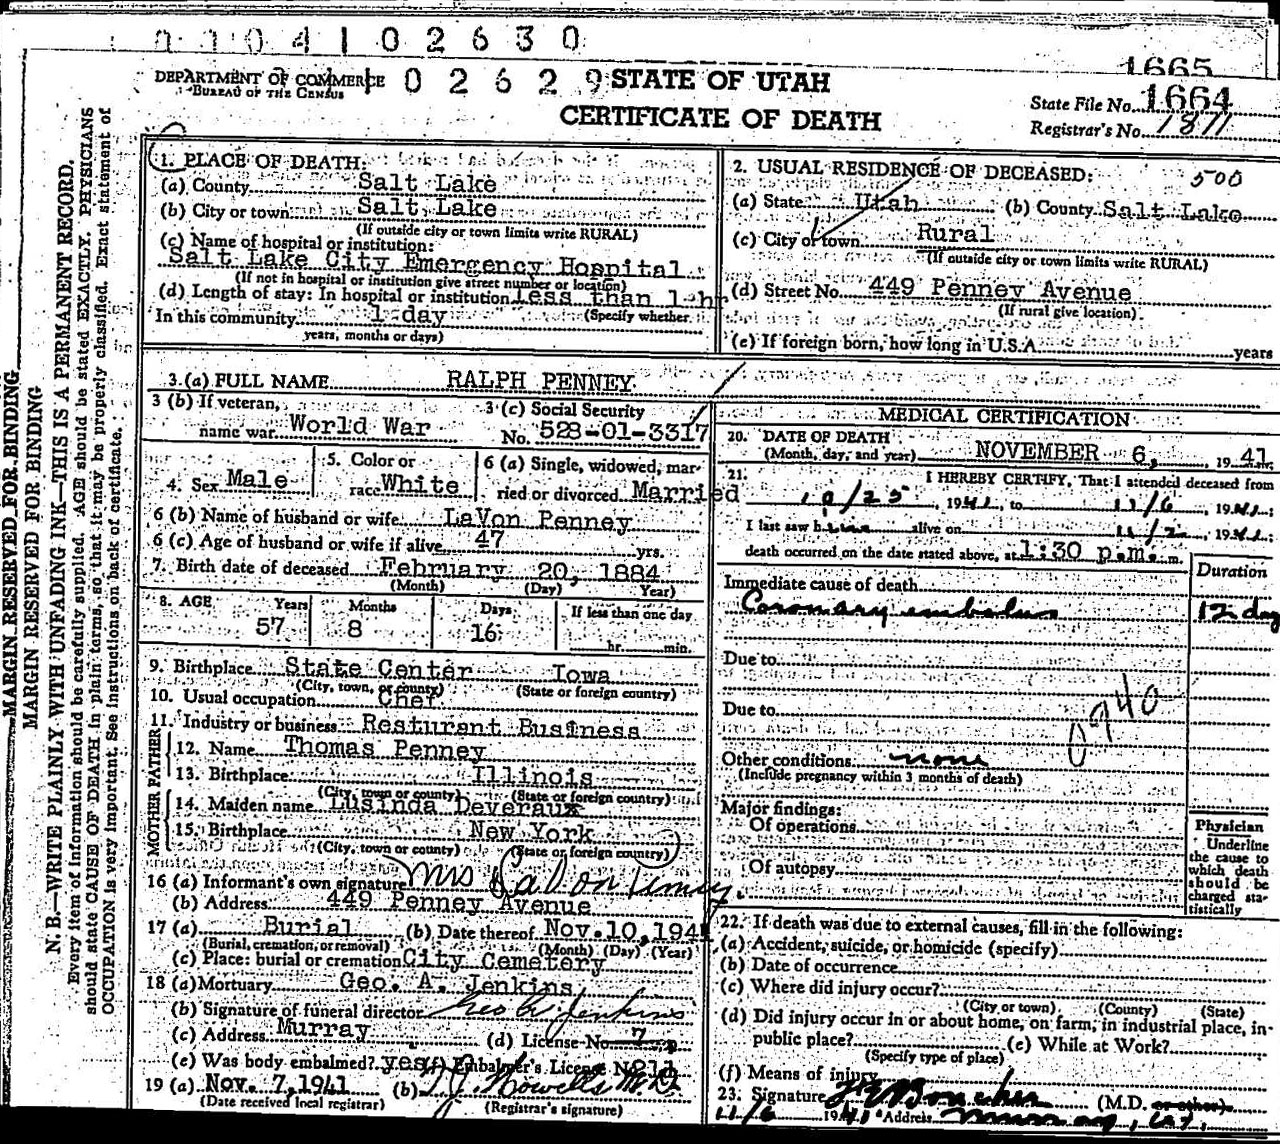 1104102630
DEPARTMENT OF COMMERCE 102629 STATE OF UTAH
BUREAU OF THE CENSUS
CERTIFICATE OF DEATH
1665
State File No. 1664
Registrar's No. 1811
MARGIN RESERVED FOR BINDING
MARGIN RESERVED FOR BINDING
N. B.—WRITE PLAINLY WITH UNFADING INK—THIS IS A PERMANENT RECORD.
Every item of information should be carefully supplied. AGE should be stated EXACTLY. PHYSICIANS
should state CAUSE OF DEATH in plain terms, so that it may be properly classified. Exact statement of
OCCUPATION is very important. See instructions on back of certificate.
1. PLACE OF DEATH:
(a) County Salt Lake
(b) City or town Salt Lake
(If outside city or town limits write RURAL)
(c) Name of hospital or institution:
Salt Lake City Emergency Hospital
(If not in hospital or institution give street number or location)
(d) Length of stay: In hospital or institution less than 1 hr
In this community 1 day (Specify whether
years, months or days)
2. USUAL RESIDENCE OF DECEASED: 500
(a) State Utah (b) County Salt Lake
(c) City or town Rural
(If outside city or town limits write RURAL)
(d) Street No. 449 Penney Avenue
(If rural give location)
(e) If foreign born, how long in U.S.A. years
3. (a) FULL NAME RALPH PENNEY
3 (b) If veteran, name war World War
3 (c) Social Security No. 528-01-3317
4. Sex Male
5. Color or race White
6 (a) Single, widowed, married or divorced Married
6 (b) Name of husband or wife LaVon Penney
6 (c) Age of husband or wife if alive 47 yrs.
7. Birth date of deceased February 20, 1884
(Month) (Day) Year)
8. AGE Years Months Days If less than one day
57 8 16 hr. min.
9. Birthplace State Center Iowa
(City, town, or county) (State or foreign country)
10. Usual occupation Chef
11. Industry or business Resturant Business
FATHER
12. Name Thomas Penney
13. Birthplace Illinois
(City, town or county) (State or foreign country)
MOTHER
14. Maiden name Lusinda Deveraux
15. Birthplace New York
(City, town or county) (State or foreign country)
16 (a) Informant's own signature Mrs LaVon Penney
(b) Address 449 Penney Avenue
17 (a) Burial (b) Date thereof Nov. 10, 1941
(Burial, cremation, or removal) (Month) (Day) (Year)
(c) Place: burial or cremation City Cemetery
18 (a) Mortuary Geo. A. Jenkins
(b) Signature of funeral director Geo A Jenkins
(c) Address Murray (d) License No. 7
(e) Was body embalmed? yes Embalmer's License No
19 (a) Nov. 7, 1941 (b)
(Date received local registrar) (Registrar's signature)
MEDICAL CERTIFICATION
20. DATE OF DEATH
(Month, day, and year) NOVEMBER 6, 19 41
21. I HEREBY CERTIFY, That I attended deceased from
10/25, 1941, to 11/6, 1941;
I last saw him alive on 11/2, 1941;
death occurred on the date stated above, at 1:30 p.m. m.
Duration
Immediate cause of death
Coronary embolus 12 day
Due to
Due to
0940
Other conditions none
(Include pregnancy within 3 months of death)
Major findings:
Of operations
Of autopsy
Physician
Underline
the cause to
which death
should be
charged statistically
22. If death was due to external causes, fill in the following:
(a) Accident, suicide, or homicide (specify)
(b) Date of occurrence
(c) Where did injury occur?
(City or town) (County) (State)
(d) Did injury occur in or about home, on farm, in industrial place, in-
public place? (e) While at Work?
(Specify type of place)
(f) Means of injury
23. Signature (M.D. or other)
11/6 1941 Address Murray, Ut.